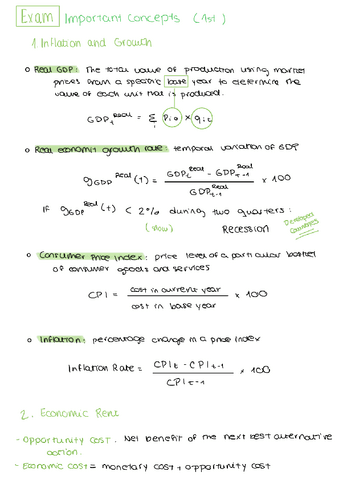 Exam Important Concepts (1st)
1. Inflation and Growth
Real GDP: The total value of production using market
prices from a specific base year to determine the
value of each unit that is produced.
GDP_t^Real = Σ_i P_i0 × q_it
Real economic growth rate: temporal variation of GDP
g_GDP^Real (t) = (GDP_t^Real - GDP_t-1^Real) / GDP_t-1^Real × 100
If g_GDP^Real (t) < 2% during two quarters:
(slow) RECESSION
Developed
countries
Consumer Price Index: price level of a particular basket
of consumer goods and services
CPI = cost in current year / cost in base year × 100
Inflation: percentage change in a price index
Inflation Rate = (CPI_t - CPI_t-1) / CPI_t-1 × 100
2. Economic Rent
- Opportunity cost. Net benefit of the next best alternative
action.
- Economic cost = monetary cost + opportunity cost